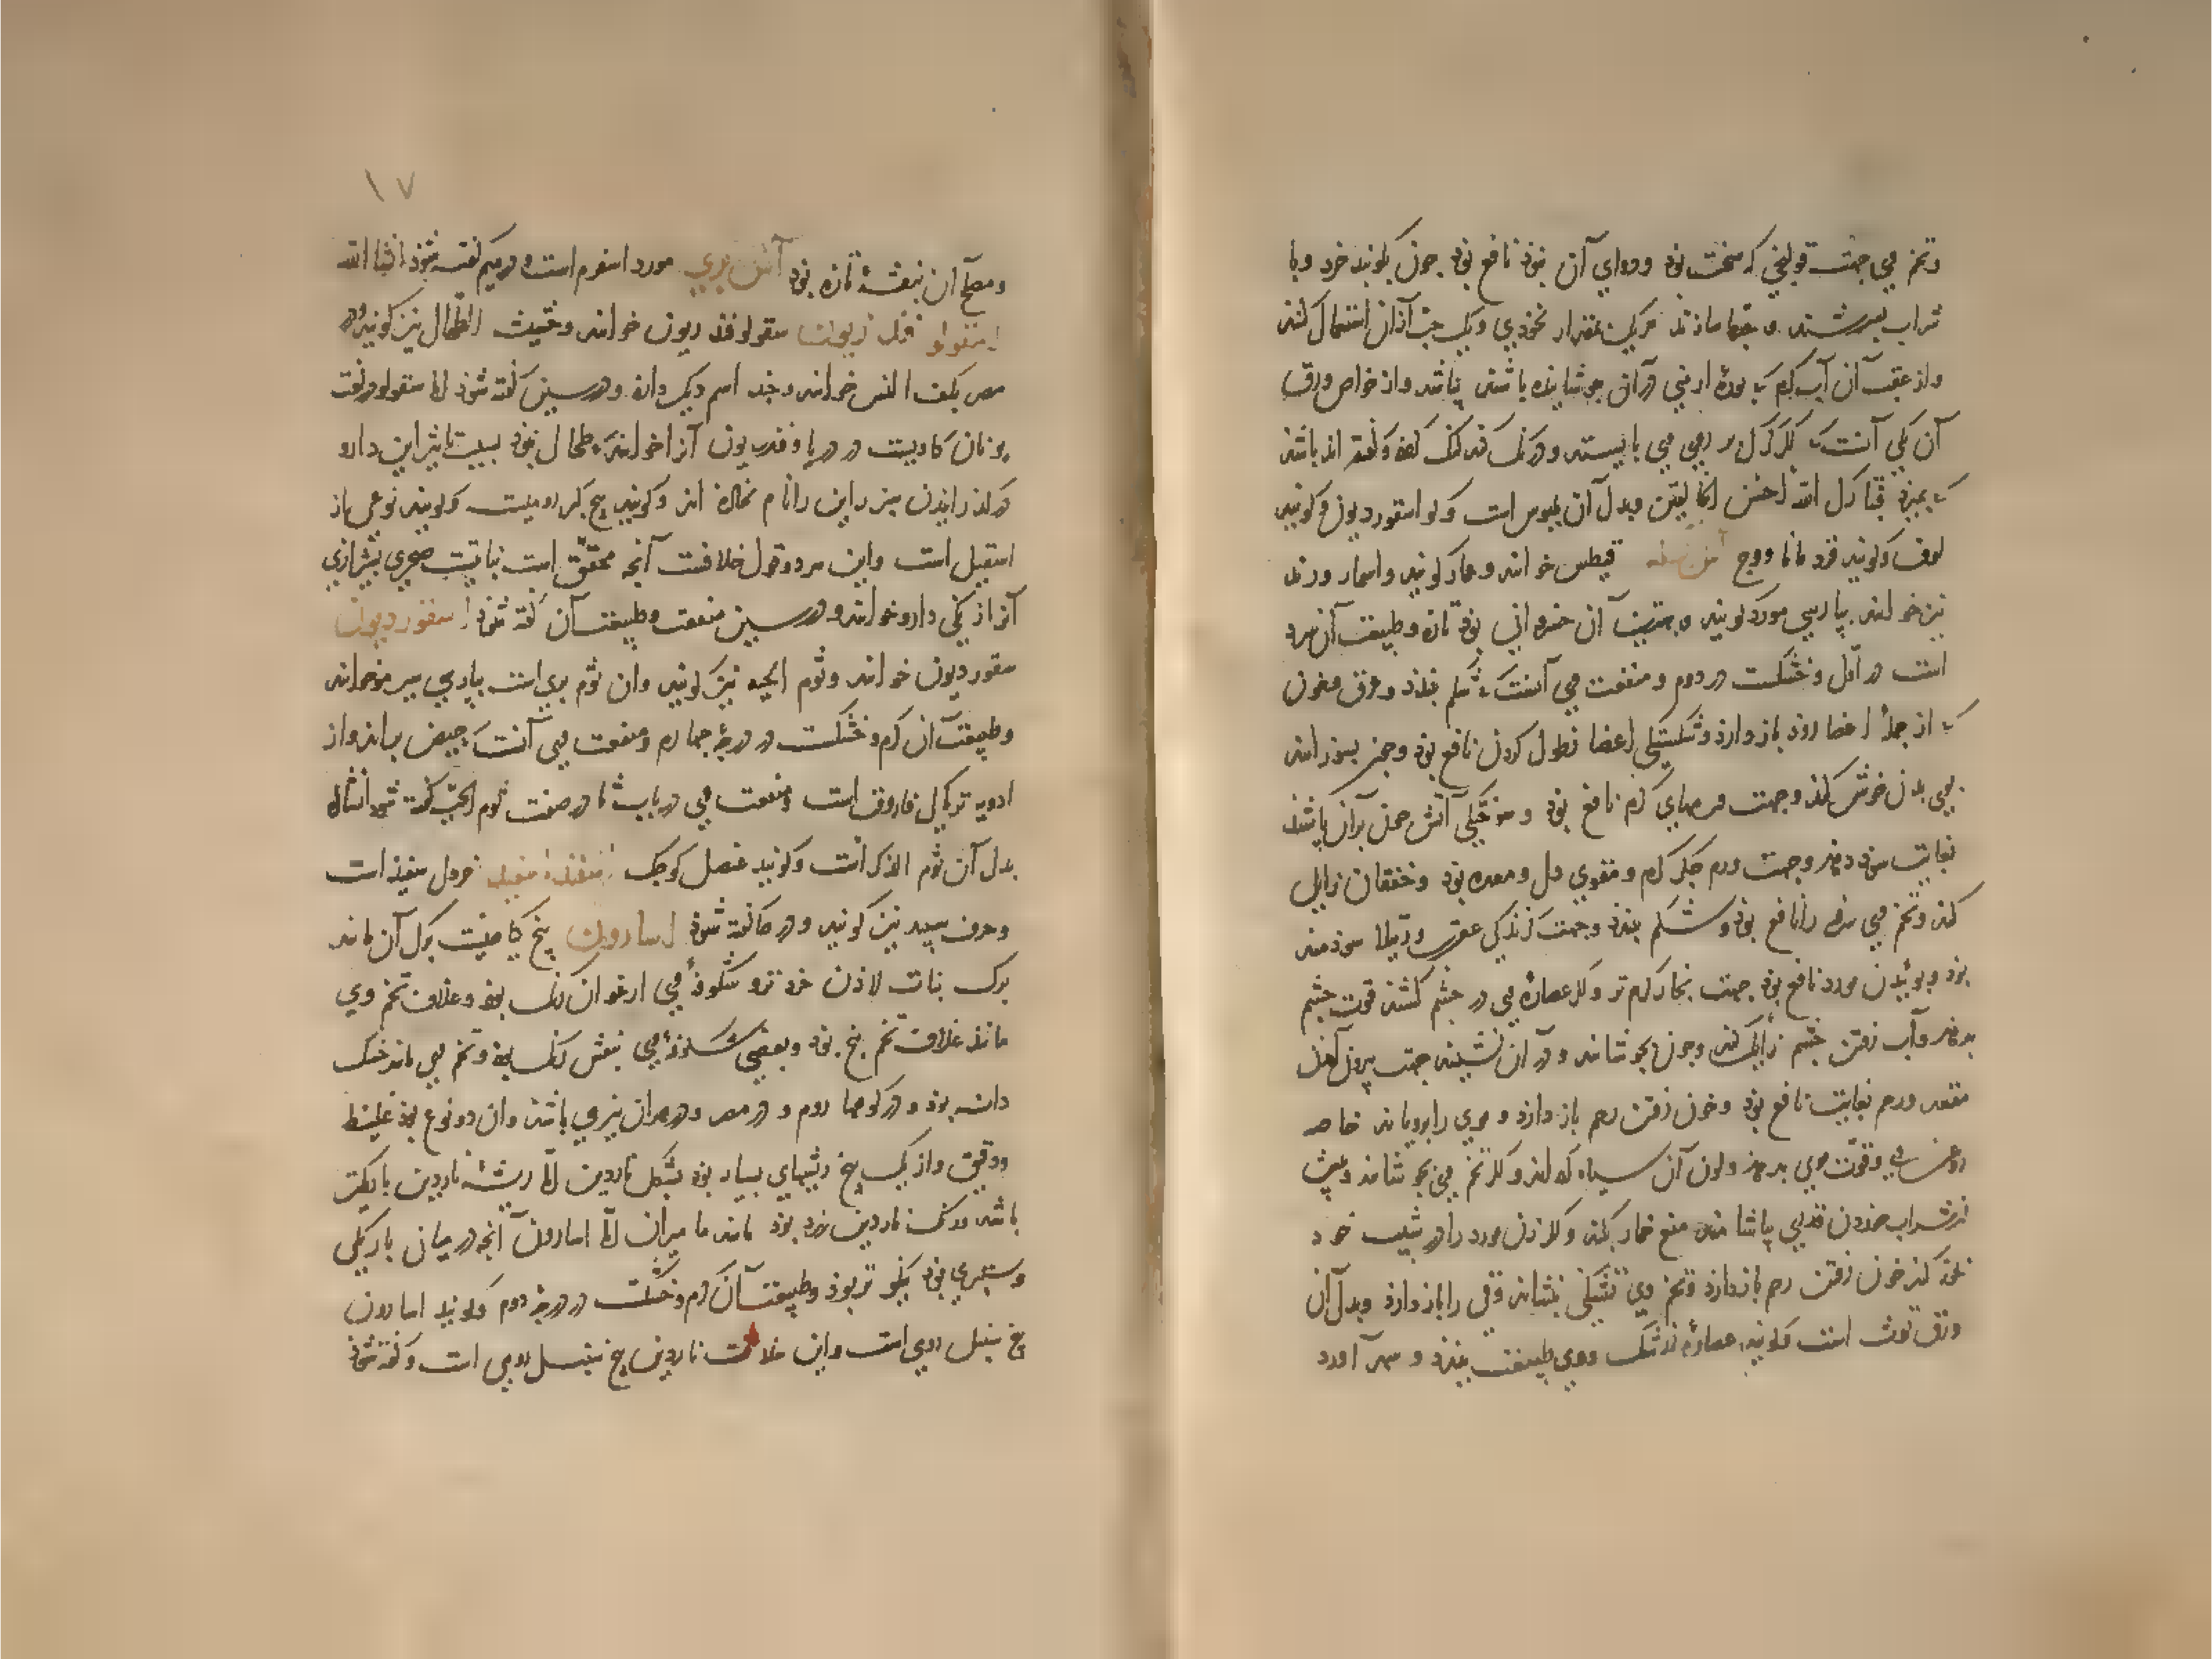 وتخم وی جهت قولنجی که سخت بود ودوای آن بنود نافع بود چون بکوبند خرد وبا
شراب بسرشند و بقها سازند هریک بمقدار نخودی ویک حب ازان استعمال کنند
واز عقب آن آب کرم که بودهٔ ارمنی دران جوشانیده باشند بیاشامد واز خواص ورق
آن یکی آنست که
که بمیرد فتبارک الله احسن الخالقین وبدل آن بلبوس است وکو اسقوردیون وکویند
لوف وکویند قردمانا ووج قیطس خوانند وعمار کویند واسمار ورند
نیز خوانند پارسی مورد کویند و بهترین آن خسروانی بود تازه وطبیعت آن سرد
است در اول وخشکست در دوم ومنفعت وی آنست که شکم ببندد وعرق وخون
که از جملهٔ اعضا رود باز دارد وشکستکی اعضا نطول کردن نافع بود وچون بسوزانند
وی بدن خوش کند وجهت ورمهای کرم نافع بود و سوختکی آتش چون بران پاشند
بغایت سود دهد وجهت ورم جکر کرم ومقوی دل ومعده بود وخفقان زایل
کند وتخم وی سرفه را نافع بود وشکم ببندد وجهت کزندکی عقرب ورتیلا سودمند
بود وبوئیدن مورد نافع بود جهت بخار کرم تر وکر عصارهٔ وی در چشم کشند قوت چشم
بدهد وآب رفتن چشم زایل کند وچون بجوشانند ودر آن نشینند جهت بیرون آمدن
مقعد ورحم بغایت نافع بود وخون رفتن رحم باز دارد و موی را برویاند خاصه
روغن وی وقوت موی بدهد ولون آن سیاه کرداند وکر تخم وی بجوشانند وپیش
از شراب خوردن قدری بیاشامند منع خمار بکند وکر زن مورد را در شیب خود
دود کند خون رفتن رحم باز دارد وتخم وی تشنکی بنشاند وقی را باز دارد وبدل آن
ورق توت است وکویند عصارهٔ زرشک ووی طبیعت ببندد و سهر آورد
۱۷
ومصلح آن بنفشهٔ تازه بود آس بری مورد اسفرم است ودر میم کفته شود انشا الله
اسقولو فندریون سقولوفندریون خوانند وحشیشة الطحال نیز کویند ودر
مصر کف النسر خوانند وچند اسم دیکر دارد ودر سین کفته شود اما سقولو در لغت
یونان کاویست در دریا وفندریون آنرا خوانند که طحال نبود بسبب تاثیر این دارو
در کذرانیدن سپرز این را نام نهاده اند وکویند بیخ کبر رومیست وکویند نوعی از
اسقیل است واین هر دو قول خلافست آنچه محقق است نباتیست صخری بشیرازی
آنرا زنکی دارو خوانند ودر سین منفعت وطبیعت آن کفته شود اسقوردیون
سقوردیون خوانند وثوم الحیه نیز کویند وان ثوم بری است پارسی سیر مو خوانند
وطبیعت آن کرم وخشکست در درجهٔ چهارم ومنفعت وی آنست که حیض براند واز
ادویه تریاک فاروق است ومنفعت وی در باب ثا در صفت ثوم الحیه کفته شود انشاالله
بدل آن ثوم الذکر است وکویند عنصل کوچک اسفند اسفید خردل سفید است
وحرف سپید نیز کویند ودر حا کفته شود اسارون بیخ کیاهیست برک آن مانند
برک نبات لاذن خردتر وشکوفهٔ وی ارغوان رنک بود وغلاف تخم وی
مانند غلاف تخم بنج بود وبعضی شکوفهٔ وی بنفش رنک بود وتخم وی مانند خسک
دانه بود ودر کوهها روم و در مصر ودر همدان نیز می باشد وان دو نوع بود غلیظ
ودقیق واز یک بیخ ریشهای بسیار بود بشکل ناردین اما ریشه ناردین باریکتر
باشد ورنک ناردین زرد بود مانند مامیران اما اسارون آنچه در میان باریکی
وستبری بود نیکوتر بود وطبیعت آن کرم وخشکست در درجهٔ دوم وکویند اسارون
بیخ سنبل رومی است واین خلافست ناردین بیخ سنبل رومی است وکفته شود